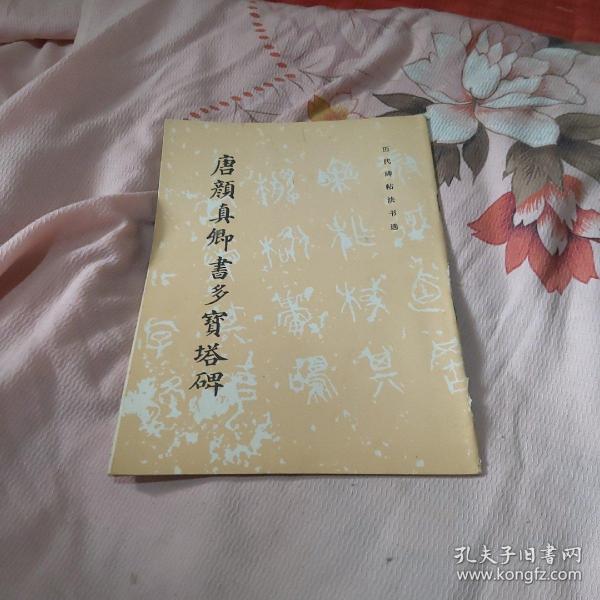 历代碑帖法书选
唐顏真卿書多寳塔碑
孔夫子旧書网
www.kongfz.com